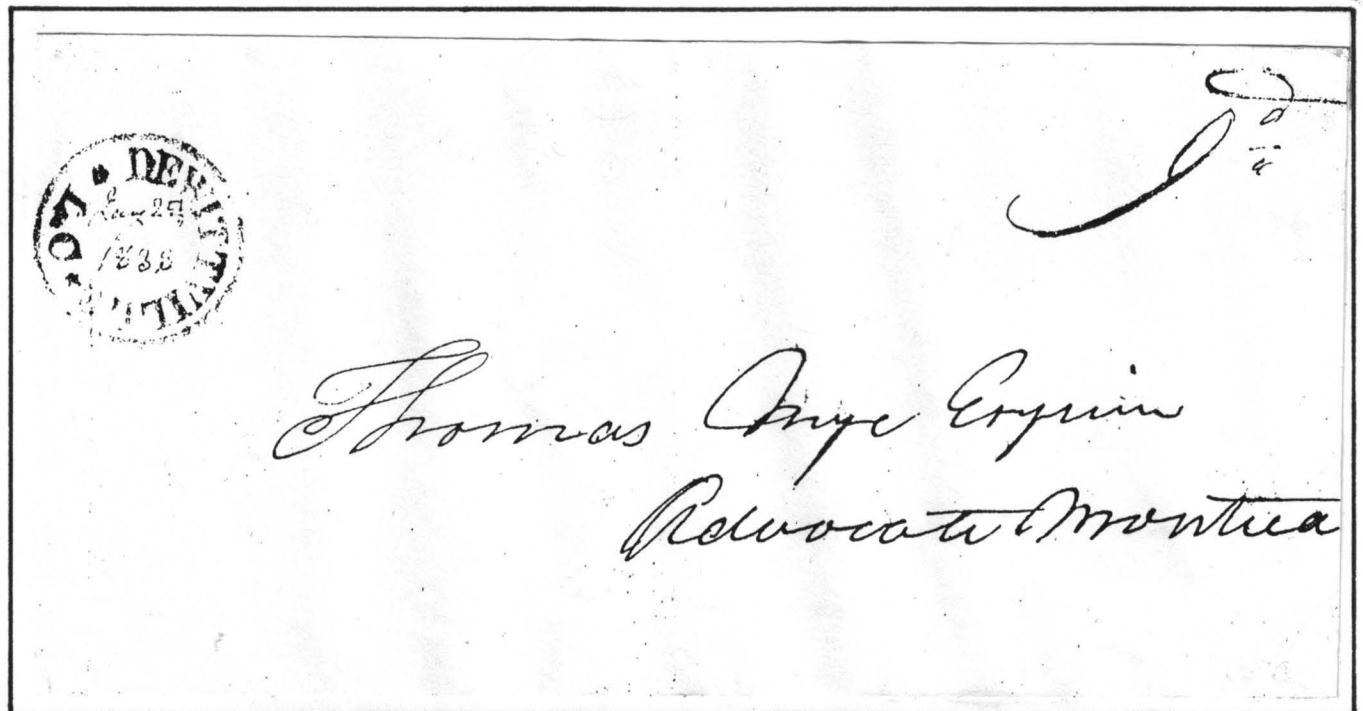 DEWITTVILLE L.C.
27
1838
Thomas Nye Esquire
Advocate Montrea